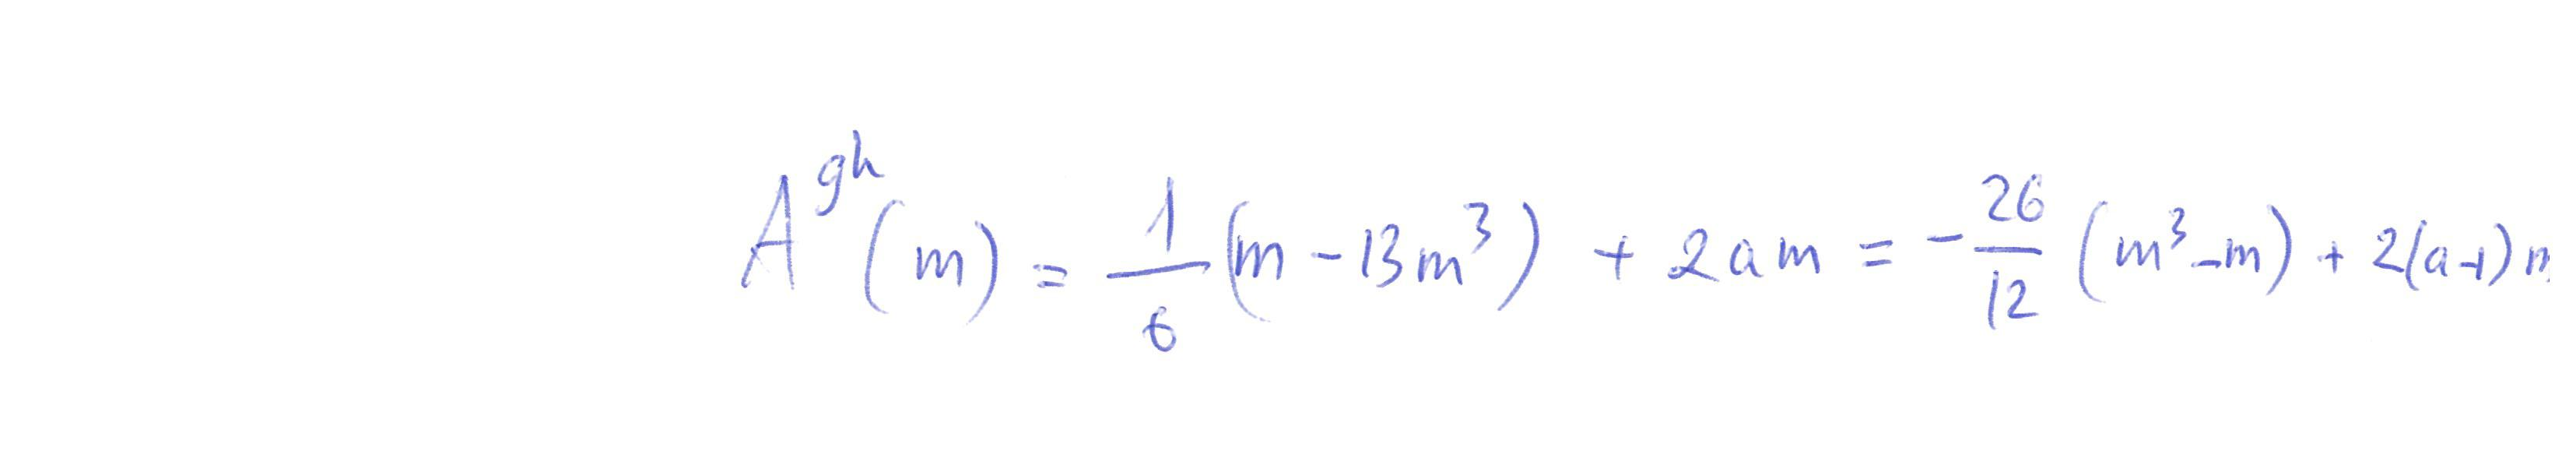 A^{gh}(m) = \frac{1}{6}(m - 13m^3) + 2am = -\frac{26}{12}(m^3 - m) + 2(a-1)m